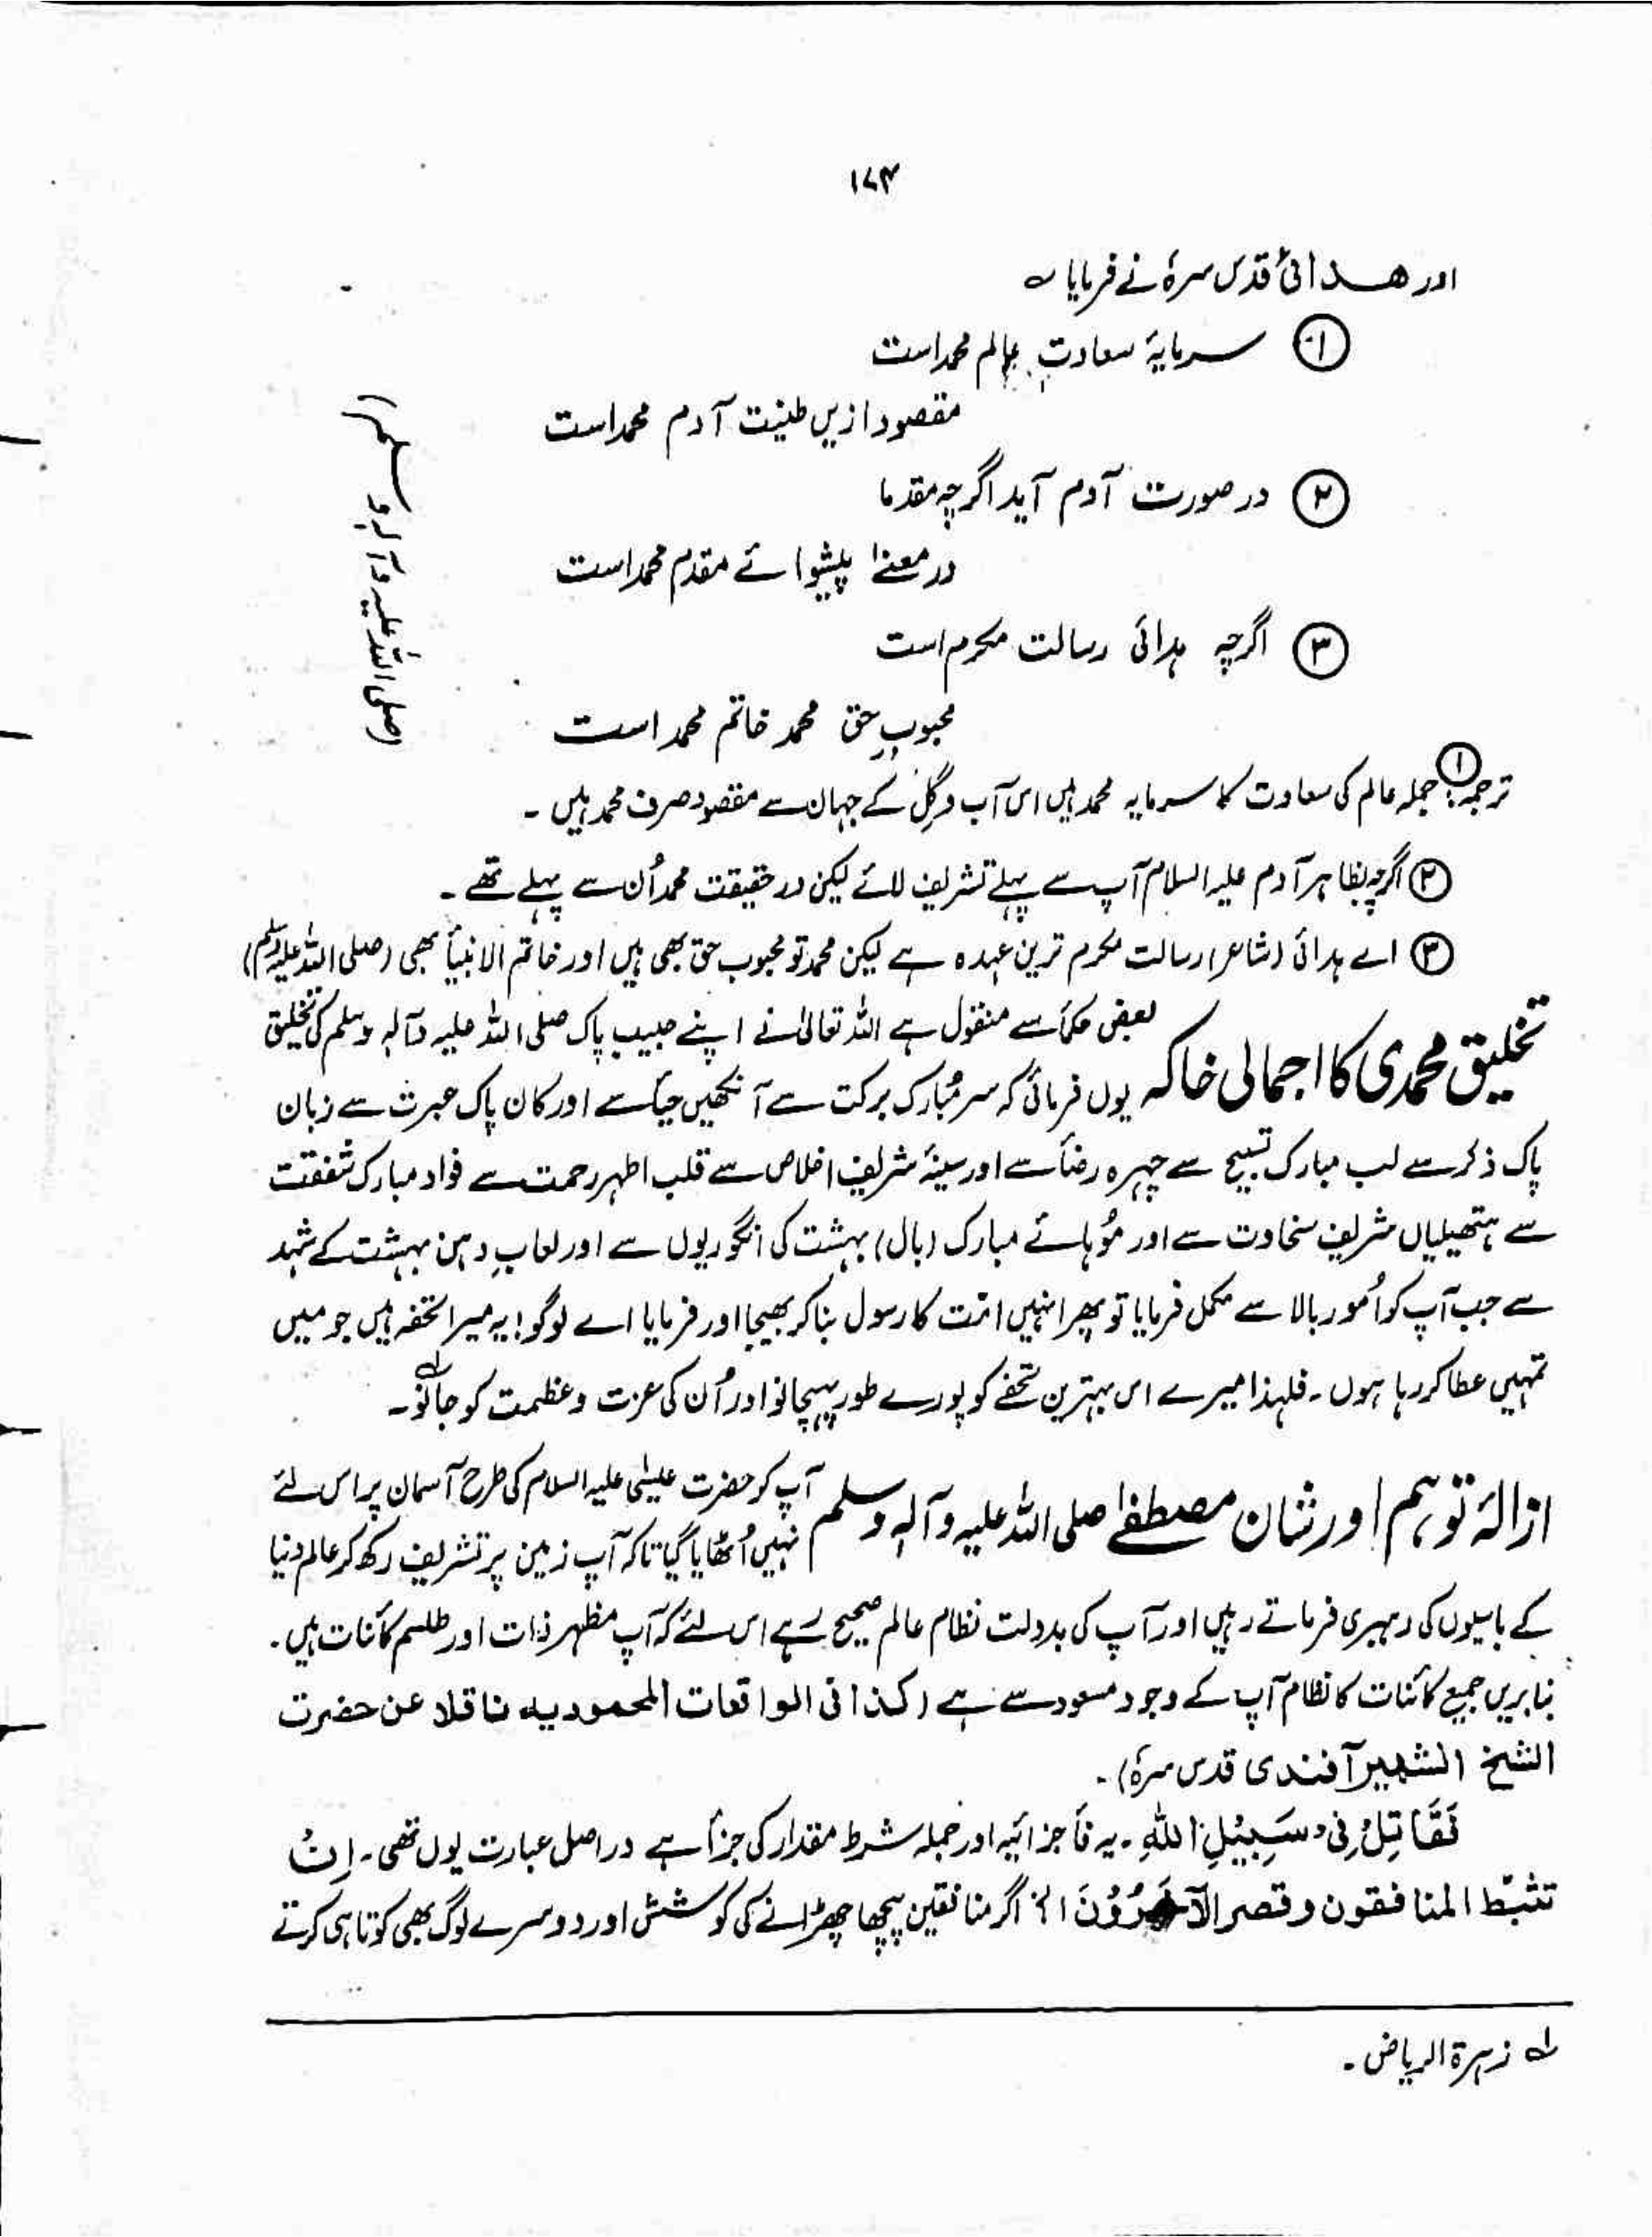 ۱۷۴
اور ھدائیؒ قدس سرہٗ نے فرمایا ؎
① سرمایۂ سعادتِ عالم محمد است
مقصود ازیں طینت آدم محمد است
② در صورت آدم آید اگرچہ مقدما
در معنےٰ پیشوائے مقدم محمد است
③ اگرچہ ہدائی رسالت مکرم است
محبوبِ حق محمد خاتم محمد است
(صلی اللہ علیہ وآلہٖ وسلم)
ترجمہ: ① جملہ عالم کی سعادت کا سرمایہ محمد ہیں اس آب و گِل کے جہان سے مقصود صرف محمد ہیں ۔
② اگرچہ بظاہر آدم علیہ السلام آپ سے پہلے تشریف لائے لیکن در حقیقت محمد اُن سے پہلے تھے ۔
③ اے ہدائی (شاعر) رسالت مکرم ترین عہدہ ہے لیکن محمد تو محبوب حق بھی ہیں اور خاتم الانبیأ بھی (صلی اللہ علیہ وسلم)
تخلیق محمدی کا اجمالی خاکہ بعض حکمأ سے منقول ہے اللہ تعالیٰ نے اپنے حبیب پاک صلی اللہ علیہ وآلہٖ وسلم کی تخلیق
یوں فرمائی کہ سر مُبارک برکت سے آنکھیں حیأ سے اور کان پاک عبرت سے زبان
پاک ذکر سے لب مبارک تسبیح سے چہرہ رضأ سے اور سینۂ شریف اخلاص سے قلب اطہر رحمت سے فواد مبارک شفقت
سے ہتھیلیاں شریف سخاوت سے اور مُوہائے مبارک (بال) بہشت کی انگوریوں سے اور لعابِ دہن بہشت کے شہد
سے جب آپ کو اُمور بالا سے مکمل فرمایا تو پھر انہیں امت کا رسول بنا کر بھیجا اور فرمایا اے لوگو! یہ میرا تحفہ ہیں جو میں
تمہیں عطا کر رہا ہوں ۔ فلہذا میرے اس بہترین تحفے کو پورے طور پہچانو اور اُن کی عزت و عظمت کو جانو لہ ۔
ازالۂ توہم اور شان مصطفےٰ صلی اللہ علیہ وآلہٖ وسلم آپ کو حضرت عیسیٰ علیہ السلام کی طرح آسمان پر اس لئے
نہیں اُٹھایا گیا تاکہ آپ زمین پر تشریف رکھ کر عالم دنیا
کے باسیوں کی رہبری فرماتے رہیں اور آپ کی بدولت نظام عالم صحیح رہے اس لئے کہ آپ مظہر ذات اور طلسم کائنات ہیں ۔
بنابریں جمیع کائنات کا نظام آپ کے وجود مسعود سے ہے (کذا فی الواقعات المحمودیہ ناقلا عن حضرت
الشیخ الشہیر آفندی قدس سرہٗ) ۔
فَقَاتِلْ فِی سَبِیْلِ اللّٰہِ ۔ یہ فأ جزائیہ اور جملہ شرط مقدار کی جزأ ہے در اصل عبارت یوں تھی ۔ اِنْ
تثبّط المنافقون وقصر الآخَرُوْنَ الخ اگر منافقین پیچھا چھڑانے کی کوشش اور دوسرے لوگ بھی کوتاہی کرتے
لہ زہرۃ الریاض ۔